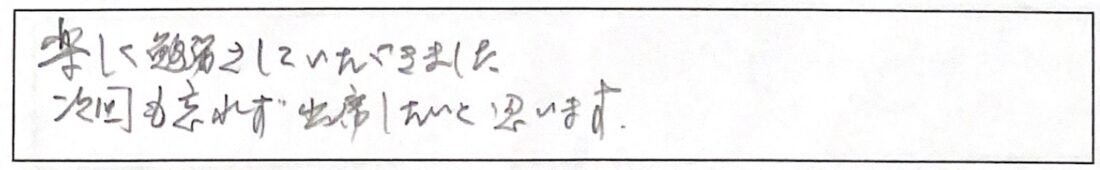 楽しく勉強をしていただきました
次回も忘れず出席したいと思います.